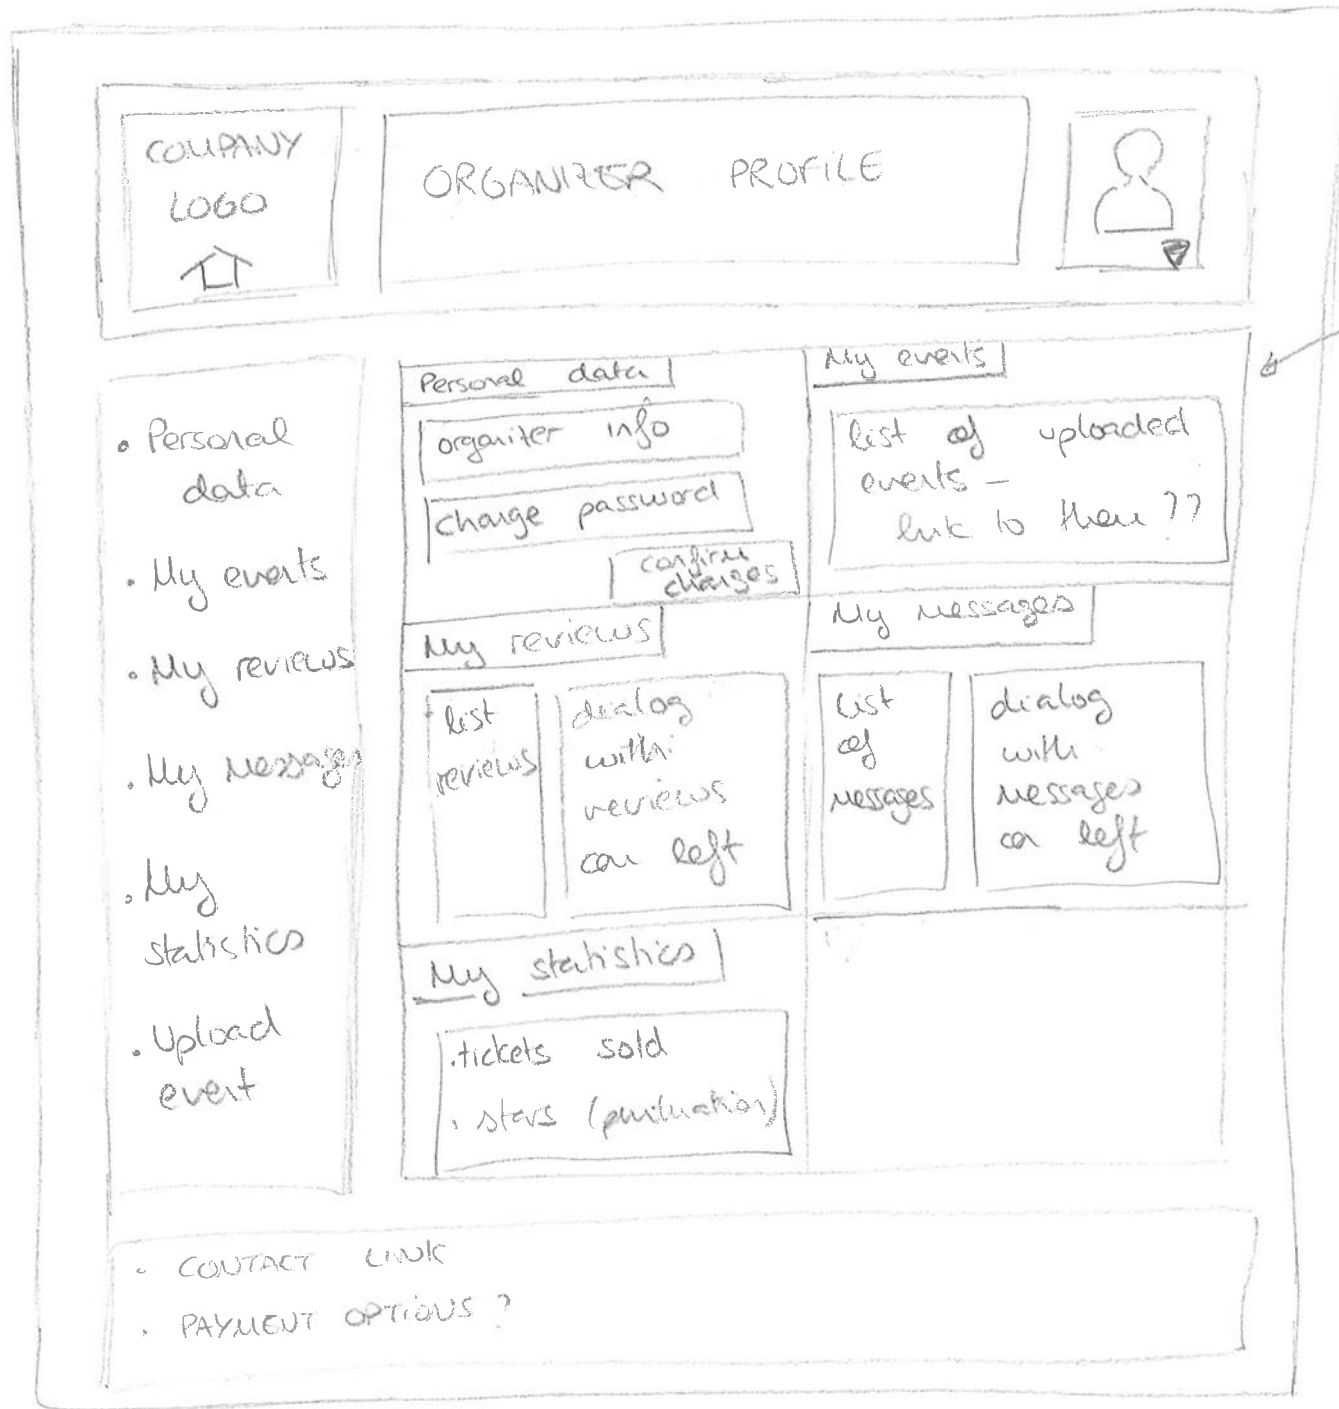 COMPANY
LOGO
ORGANIZER PROFILE
• Personal
data
• My events
• My reviews
• My messages
• My
statistics
• Upload
event
Personal data
organizer info
change password
confirm
changes
My events
list of uploaded
events –
link to them??
My reviews
list
reviews
dialog
with
reviews
on left
My messages
list
of
messages
dialog
with
messages
on left
My statistics
• tickets sold
• stars (puntuation)
• CONTACT LINK
• PAYMENT OPTIONS?